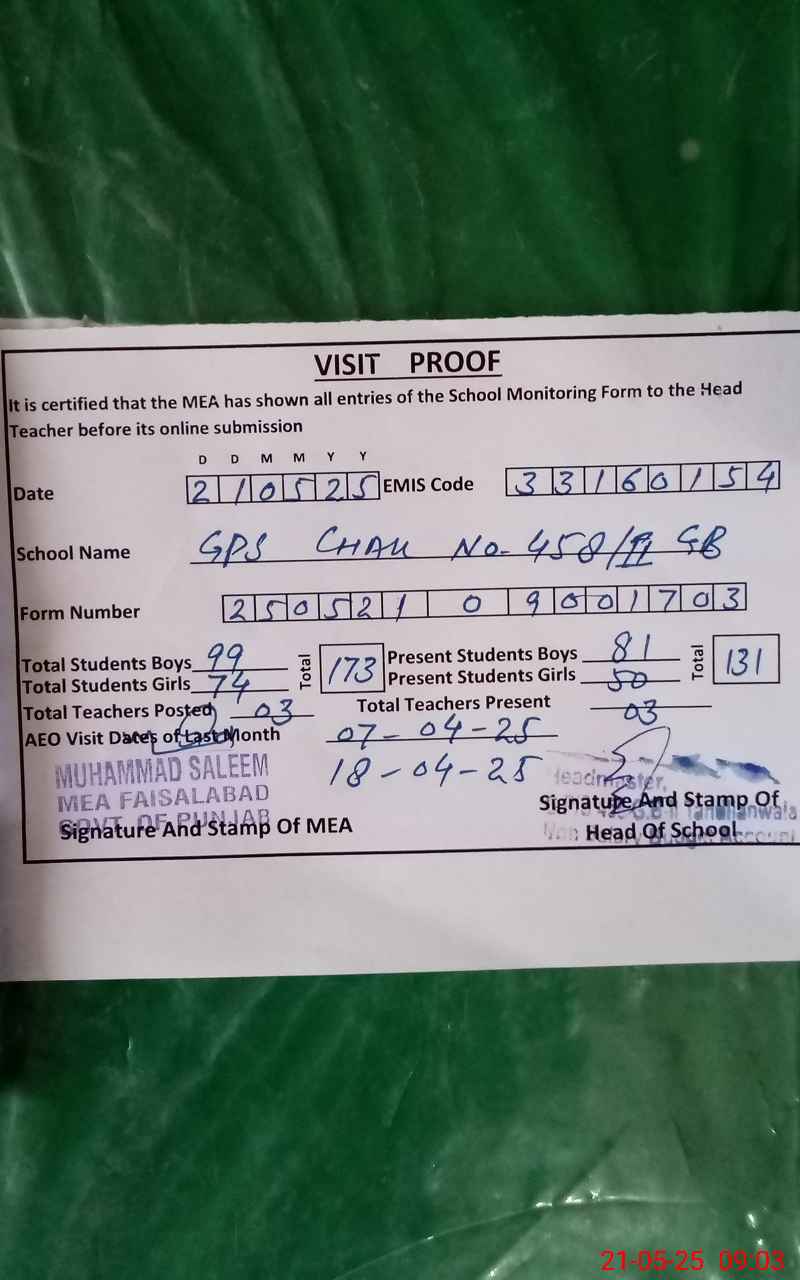 VISIT PROOF
It is certified that the MEA has shown all entries of the School Monitoring Form to the Head
Teacher before its online submission
D D M M Y Y
Date 210525 EMIS Code 33160154
School Name GPS CHAK No. 458/ GB
Form Number 250521 0 9001703
Total Students Boys 99 Total 173 Present Students Boys 81 Total 131
Total Students Girls 74 Present Students Girls 50
Total Teachers Posted 03 Total Teachers Present 03
AEO Visit Dates of Last Month 07-04-25
18-04-25
MUHAMMAD SALEEM
MEA FAISALABAD
GOVT. OF PUNJAB
Signature And Stamp Of MEA
Headmaster,
Signature And Stamp Of
Head Of School
21-05-25 09:03